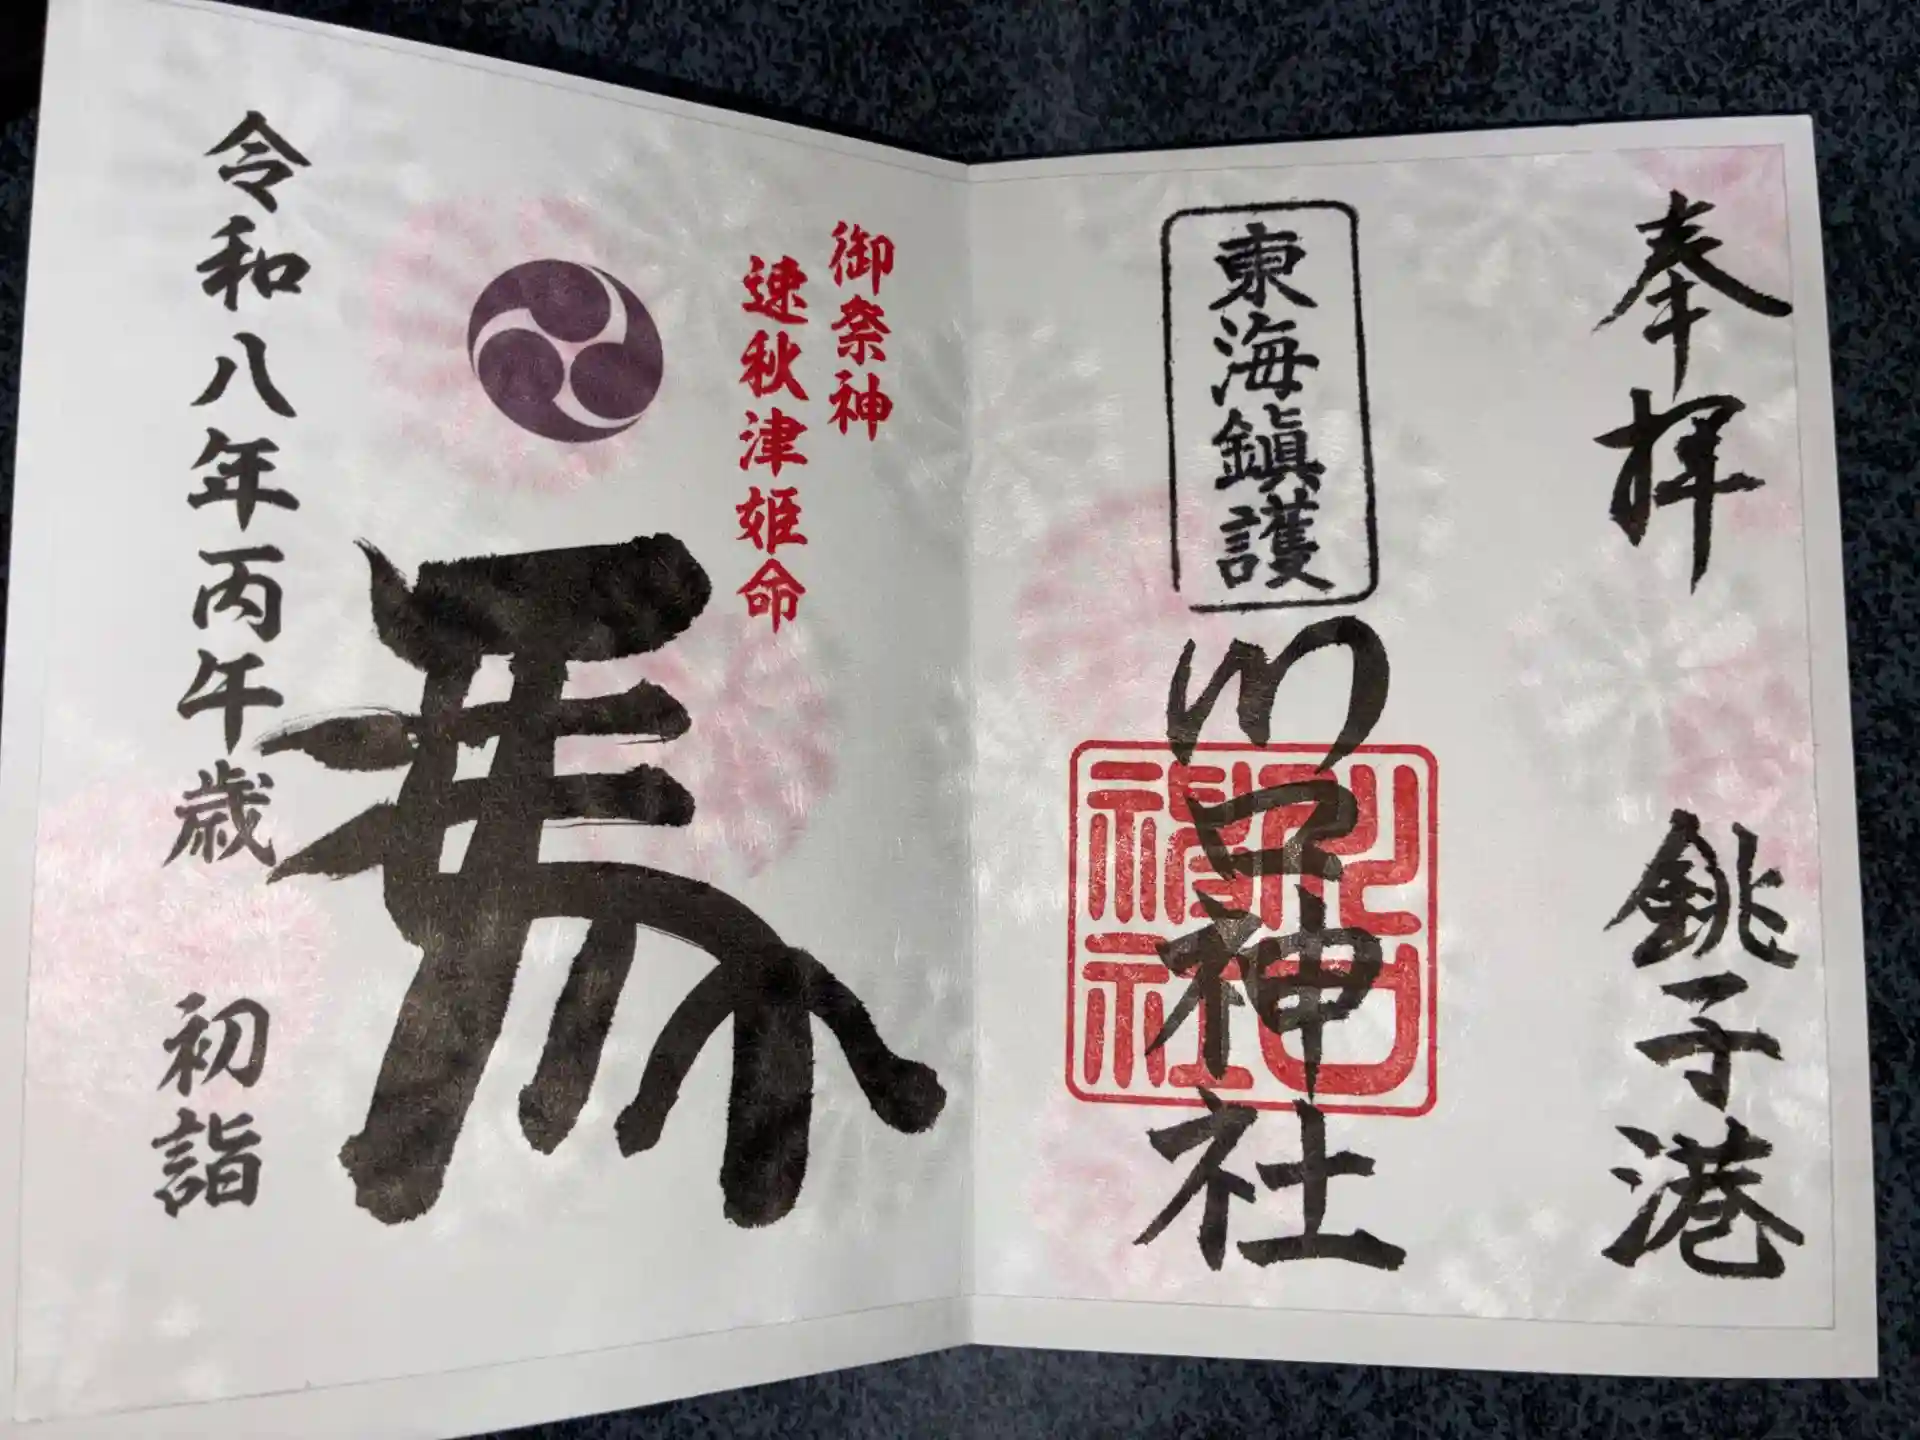 奉拝
銚子港
東海鎮護
川口神社
川口神社
御祭神
速秋津姫命
馬
令和八年丙午歳
初詣